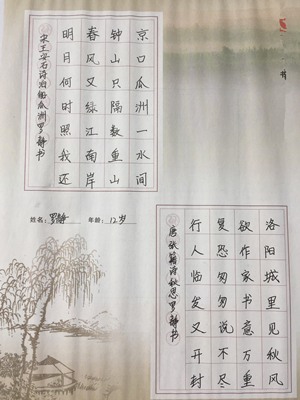 京口瓜洲一水间
钟山只隔数重山
春风又绿江南岸
明月何时照我还
宋王安石诗泊船瓜洲罗静书
姓名：罗静 年龄：12岁
洛阳城里见秋风
欲作家书意万重
复恐匆匆说不尽
行人临发又开封
唐张籍诗秋思罗静书